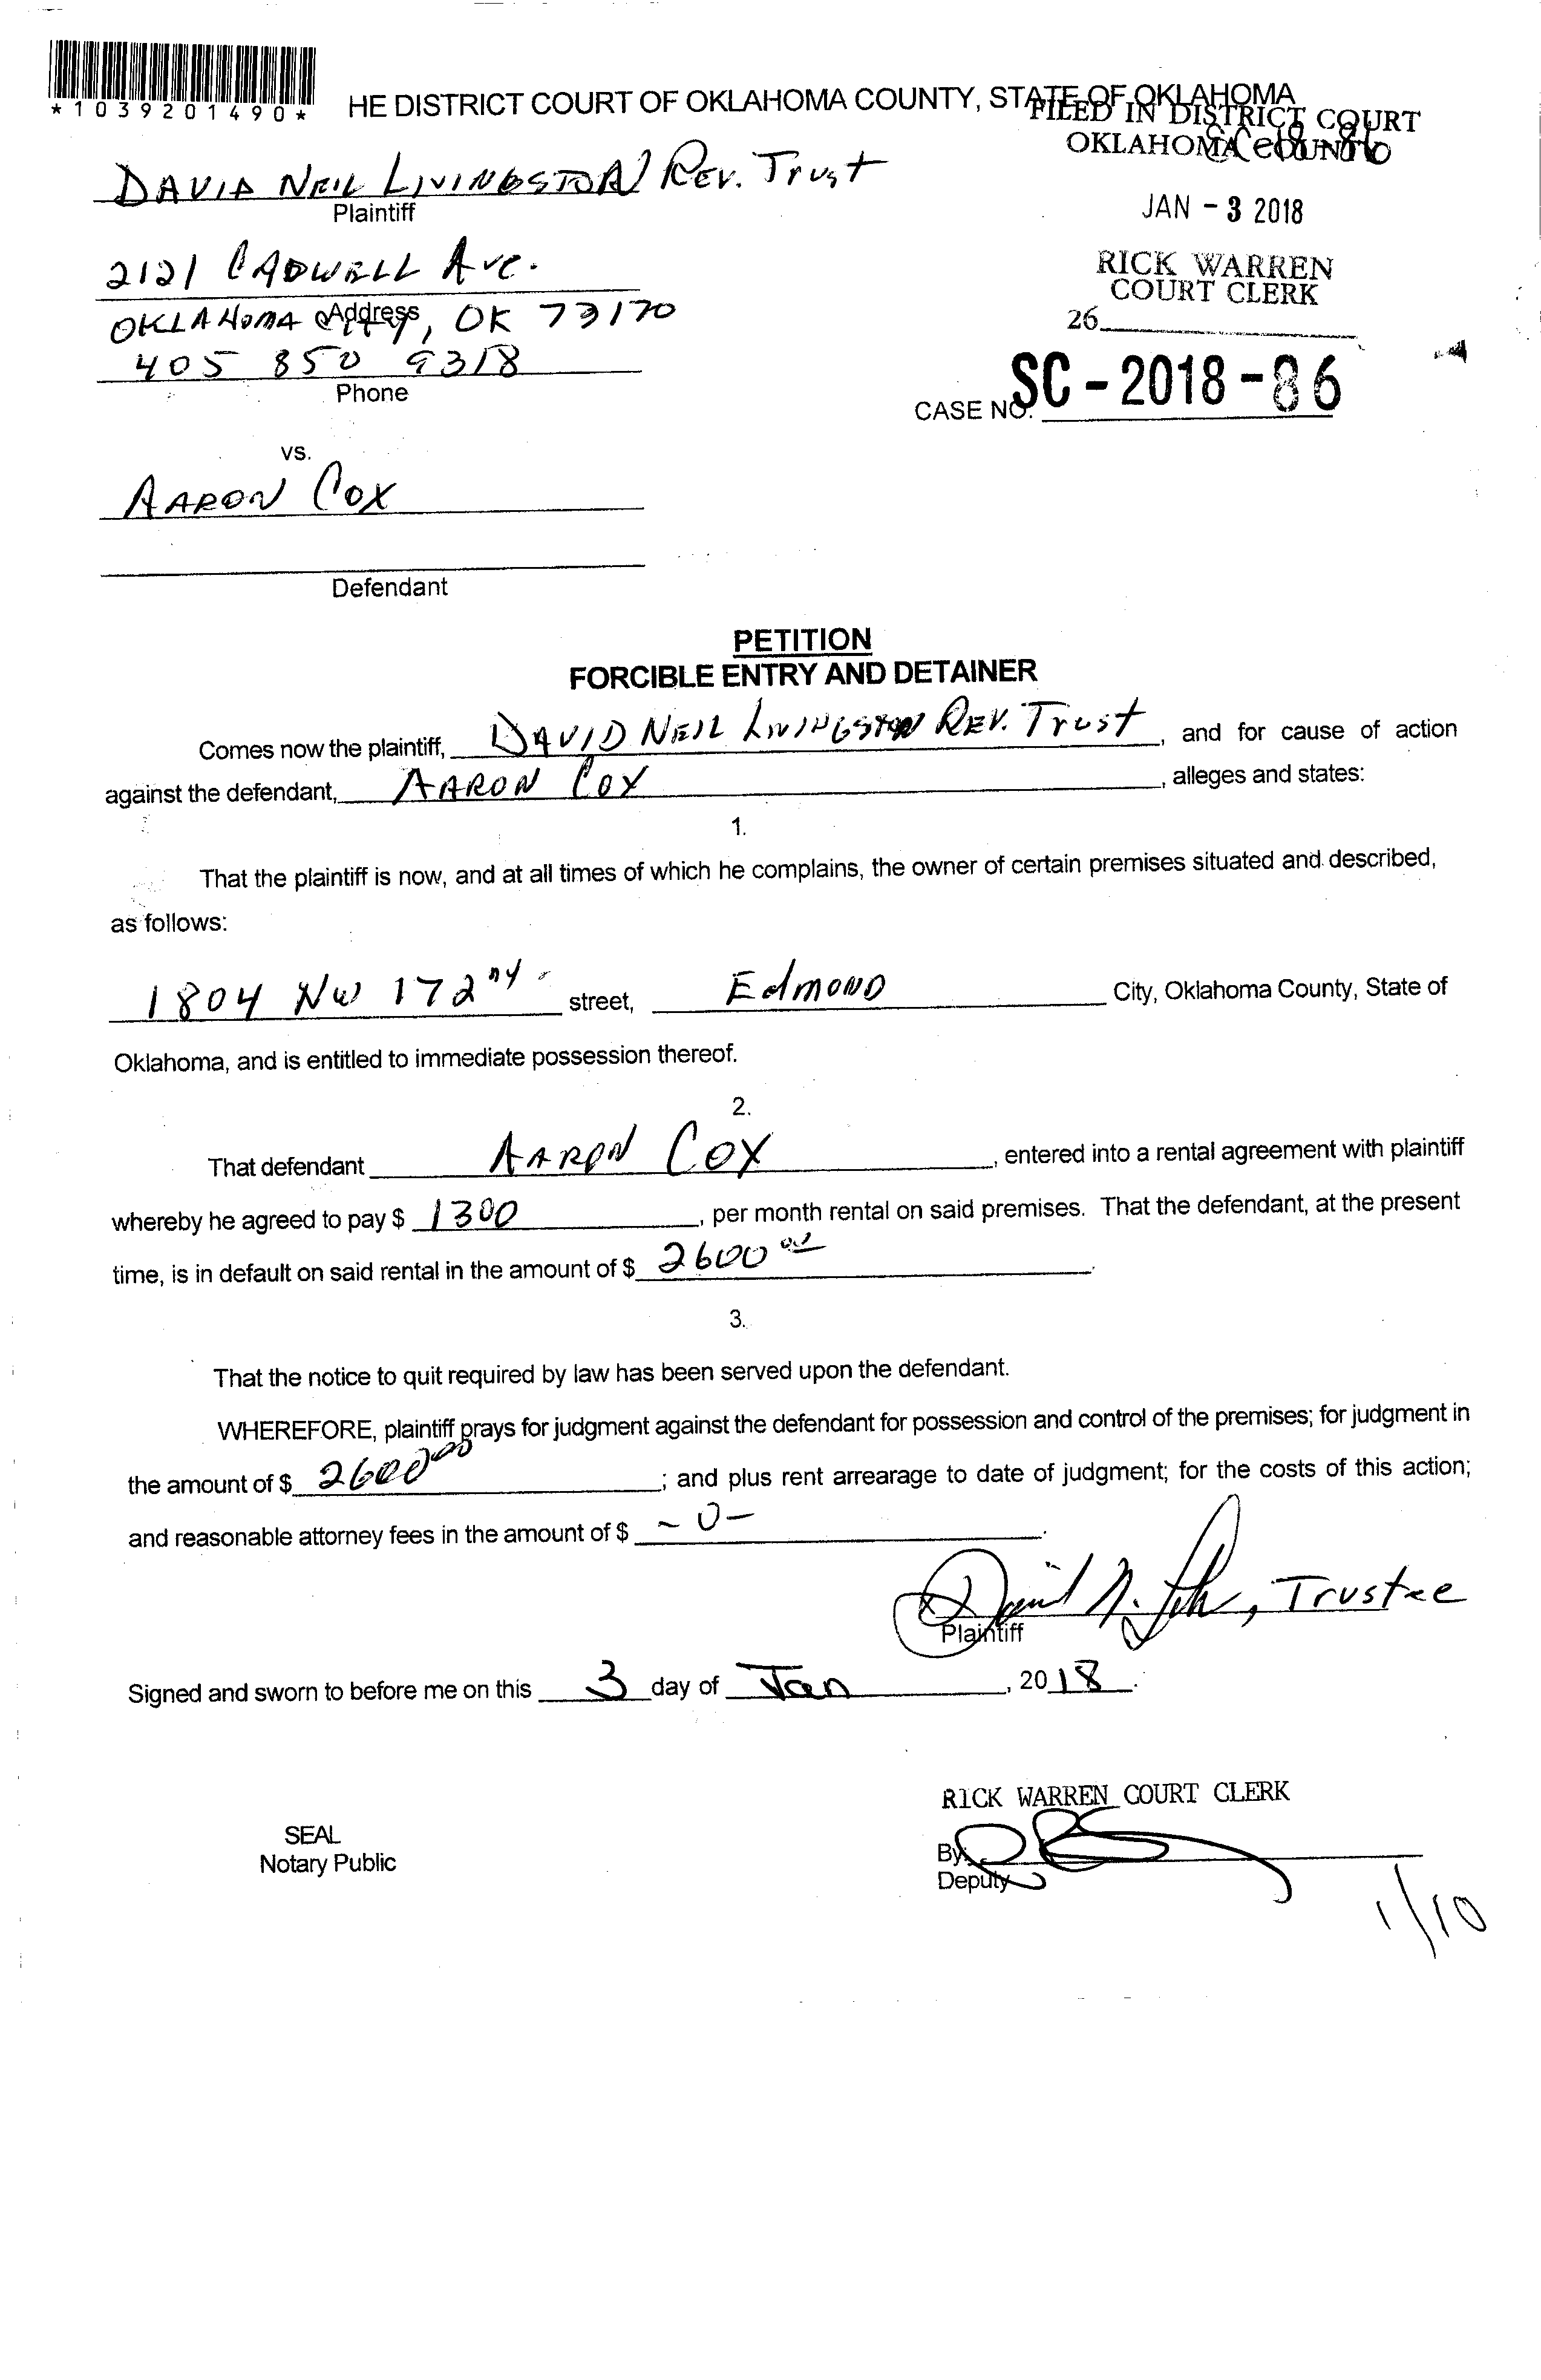 *1039201490*
HE DISTRICT COURT OF OKLAHOMA COUNTY, STATE OF OKLAHOMA
FILED IN DISTRICT COURT
OKLAHOMA COUNTY
DAVID NEIL LIVINGSTON REV. Trust
Plaintiff
JAN - 3 2018
2121 CADWELL Ave.
RICK WARREN
COURT CLERK
Address
OKLAHOMA City, OK 73170
26
405 850 9318
Phone
CASE NO. SC - 2018 - 86
vs.
AARON COX
Defendant
PETITION
FORCIBLE ENTRY AND DETAINER
Comes now the plaintiff, DAVID NEIL LIVINGSTON REV. Trust, and for cause of action
against the defendant, AARON COX, alleges and states:
1.
That the plaintiff is now, and at all times of which he complains, the owner of certain premises situated and described,
as follows:
1804 NW 172nd street, Edmond City, Oklahoma County, State of
Oklahoma, and is entitled to immediate possession thereof.
2.
That defendant AARON COX, entered into a rental agreement with plaintiff
whereby he agreed to pay $ 1300, per month rental on said premises. That the defendant, at the present
time, is in default on said rental in the amount of $ 2600 00.
3.
That the notice to quit required by law has been served upon the defendant.
WHEREFORE, plaintiff prays for judgment against the defendant for possession and control of the premises; for judgment in
the amount of $ 2600 00; and plus rent arrearage to date of judgment; for the costs of this action;
and reasonable attorney fees in the amount of $ -0-.
, Trustee
Plaintiff
Signed and sworn to before me on this 3 day of Jan, 2018.
RICK WARREN COURT CLERK
SEAL
Notary Public
By:
Deputy
1/10